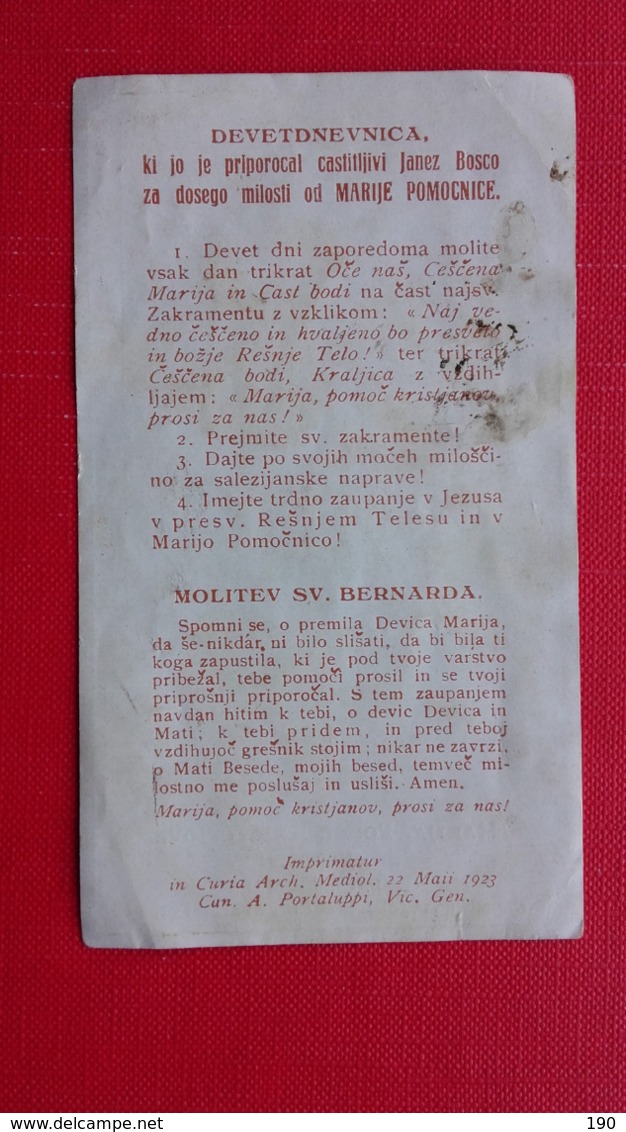 DEVETDNEVNICA,
ki jo je priporocal castitljivi Janez Bosco
za dosego milosti od MARIJE POMOCNICE.
1. Devet dni zaporedoma molite
vsak dan trikrat Oče naš, Ceščena
Marija in Cast bodi na čast najsv.
Zakramentu z vzklikom: «Naj ve-
dno češčeno in hvaljeno bo presveto
in božje Rešnje Telo!» ter trikrat
Češčena bodi, Kraljica z vzdih-
ljajem: «Marija, pomoč kristjanov,
prosi za nas!»
2. Prejmite sv. zakramente!
3. Dajte po svojih močeh milošči-
no za salezijanske naprave!
4. Imejte trdno zaupanje v Jezusa
v presv. Rešnjem Telesu in v
Marijo Pomočnico!
MOLITEV SV. BERNARDA.
Spomni se, o premila Devica Marija,
da še-nikdár ni bilo slišati, da bi bila ti
koga zapustila, ki je pod tvoje varstvo
pribežal, tebe pomoči prosil in se tvoji
priprošnji priporočal. S tem zaupanjem
navdan hitim k tebi, o devic Devica in
Mati; k tebi pridem, in pred teboj
vzdihujoč grešnik stojim; nikar ne zavrzi,
o Mati Besede, mojih besed, temveč mi-
lostno me poslušaj in usliši. Amen.
Marija, pomoč kristjanov, prosi za nas!
Imprimatur
in Curia Arch. Mediol. 22 Maii 1923
Can. A. Portaluppi, Vic. Gen.
delcampe.net
Lacko
190